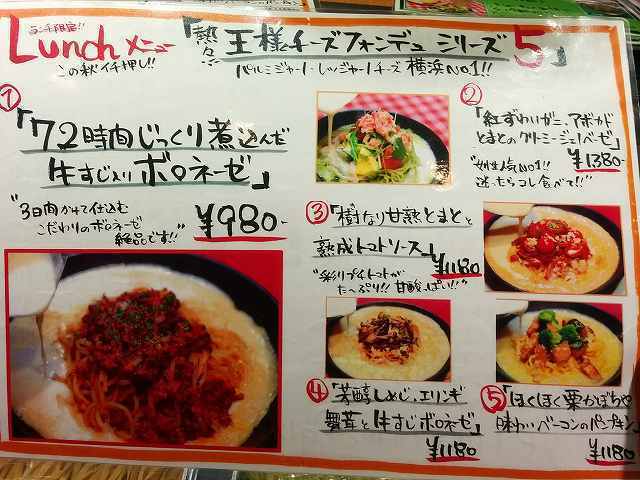 ランチ限定!!
Lunch メニュー
この秋イチ押し!!
「熱々 王様チーズフォンデュ シリーズ 5」
パルミジャーノ・レッジャーノチーズ 横浜No1!!
①
「72時間じっくり煮込んだ
牛すじ入り ボロネーゼ」
"3日間かけて仕込む
こだわりのボロネーゼ
絶品です!!"
¥980-
②
「紅ずわいガニ、アボカド
とまとのクリーミージェノベーゼ」
"女性人気No1!!
迷ったらコレ食べて!!"
¥1380-
③「樹なり甘熟とまとと
熟成トマトソース」
¥1180
"彩りプチトマトが
たーっぷり!! 甘酸っぱい!!"
④「芳醇しめじ、エリンギ
舞茸と牛すじボロネーゼ」
¥1180
⑤「ほくほく栗かぼちゃ
味わいベーコンのパンプキン」
¥1180